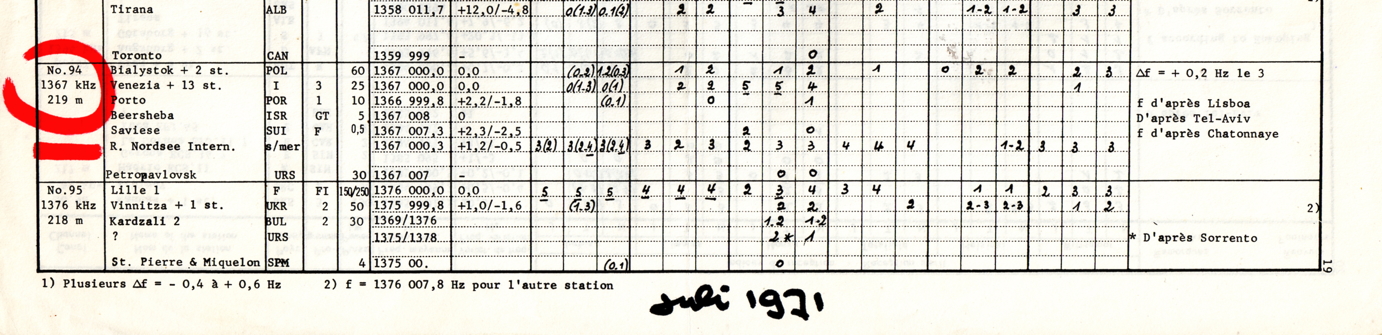 Tirana ALB 1358 011,7 +12,0/-4,8 0(1.3) 0.1(2) 2 2 3 4 2 1-2 1-2 3 3
Toronto CAN 1359 999 - 0
No.94 Bialystok + 2 st. POL 60 1367 000,0 0,0 (0.2) 1.2(0.3) 1 2 1 2 1 0 2 2 2 3 Δf = + 0,2 Hz le 3
1367 kHz Venezia + 13 st. I 3 25 1367 000,0 0,0 0(1.3) 0(1) 2 2 5 5 4 1
219 m Porto POR 1 10 1366 999,8 +2,2/-1,8 (0.1) 0 1 f d'après Lisboa
Beersheba ISR GT 5 1367 008 0 D'après Tel-Aviv
Saviese SUI F 0,5 1367 007,3 +2,3/-2,5 2 0 f d'après Chatonnaye
R. Nordsee Intern. s/mer 1367 000,3 +1,2/-0,5 3(2) 3(2.4) 3(2.4) 3 2 3 2 3 3 4 4 4 1-2 3 3 3
Petropavlovsk URS 30 1367 007 - 0 0
No.95 Lille 1 F FI 150/250 1376 000,0 0,0 5 5 5 4 4 4 2 3 4 3 4 1 1 2 3 3
1376 kHz Vinnitza + 1 st. UKR 2 50 1375 999,8 +1,0/-1,6 (1.3) 2 2 2 2-3 2-3 1 2 2)
218 m Kardzali 2 BUL 2 30 1369/1376 1.2 1-2
? URS 1375/1378 2* 1 * D'après Sorrento
St. Pierre & Miquelon SPM 4 1375 00. (0.1) 0
19
1) Plusieurs Δf = - 0,4 à + 0,6 Hz 2) f = 1376 007,8 Hz pour l'autre station
Juli 1971